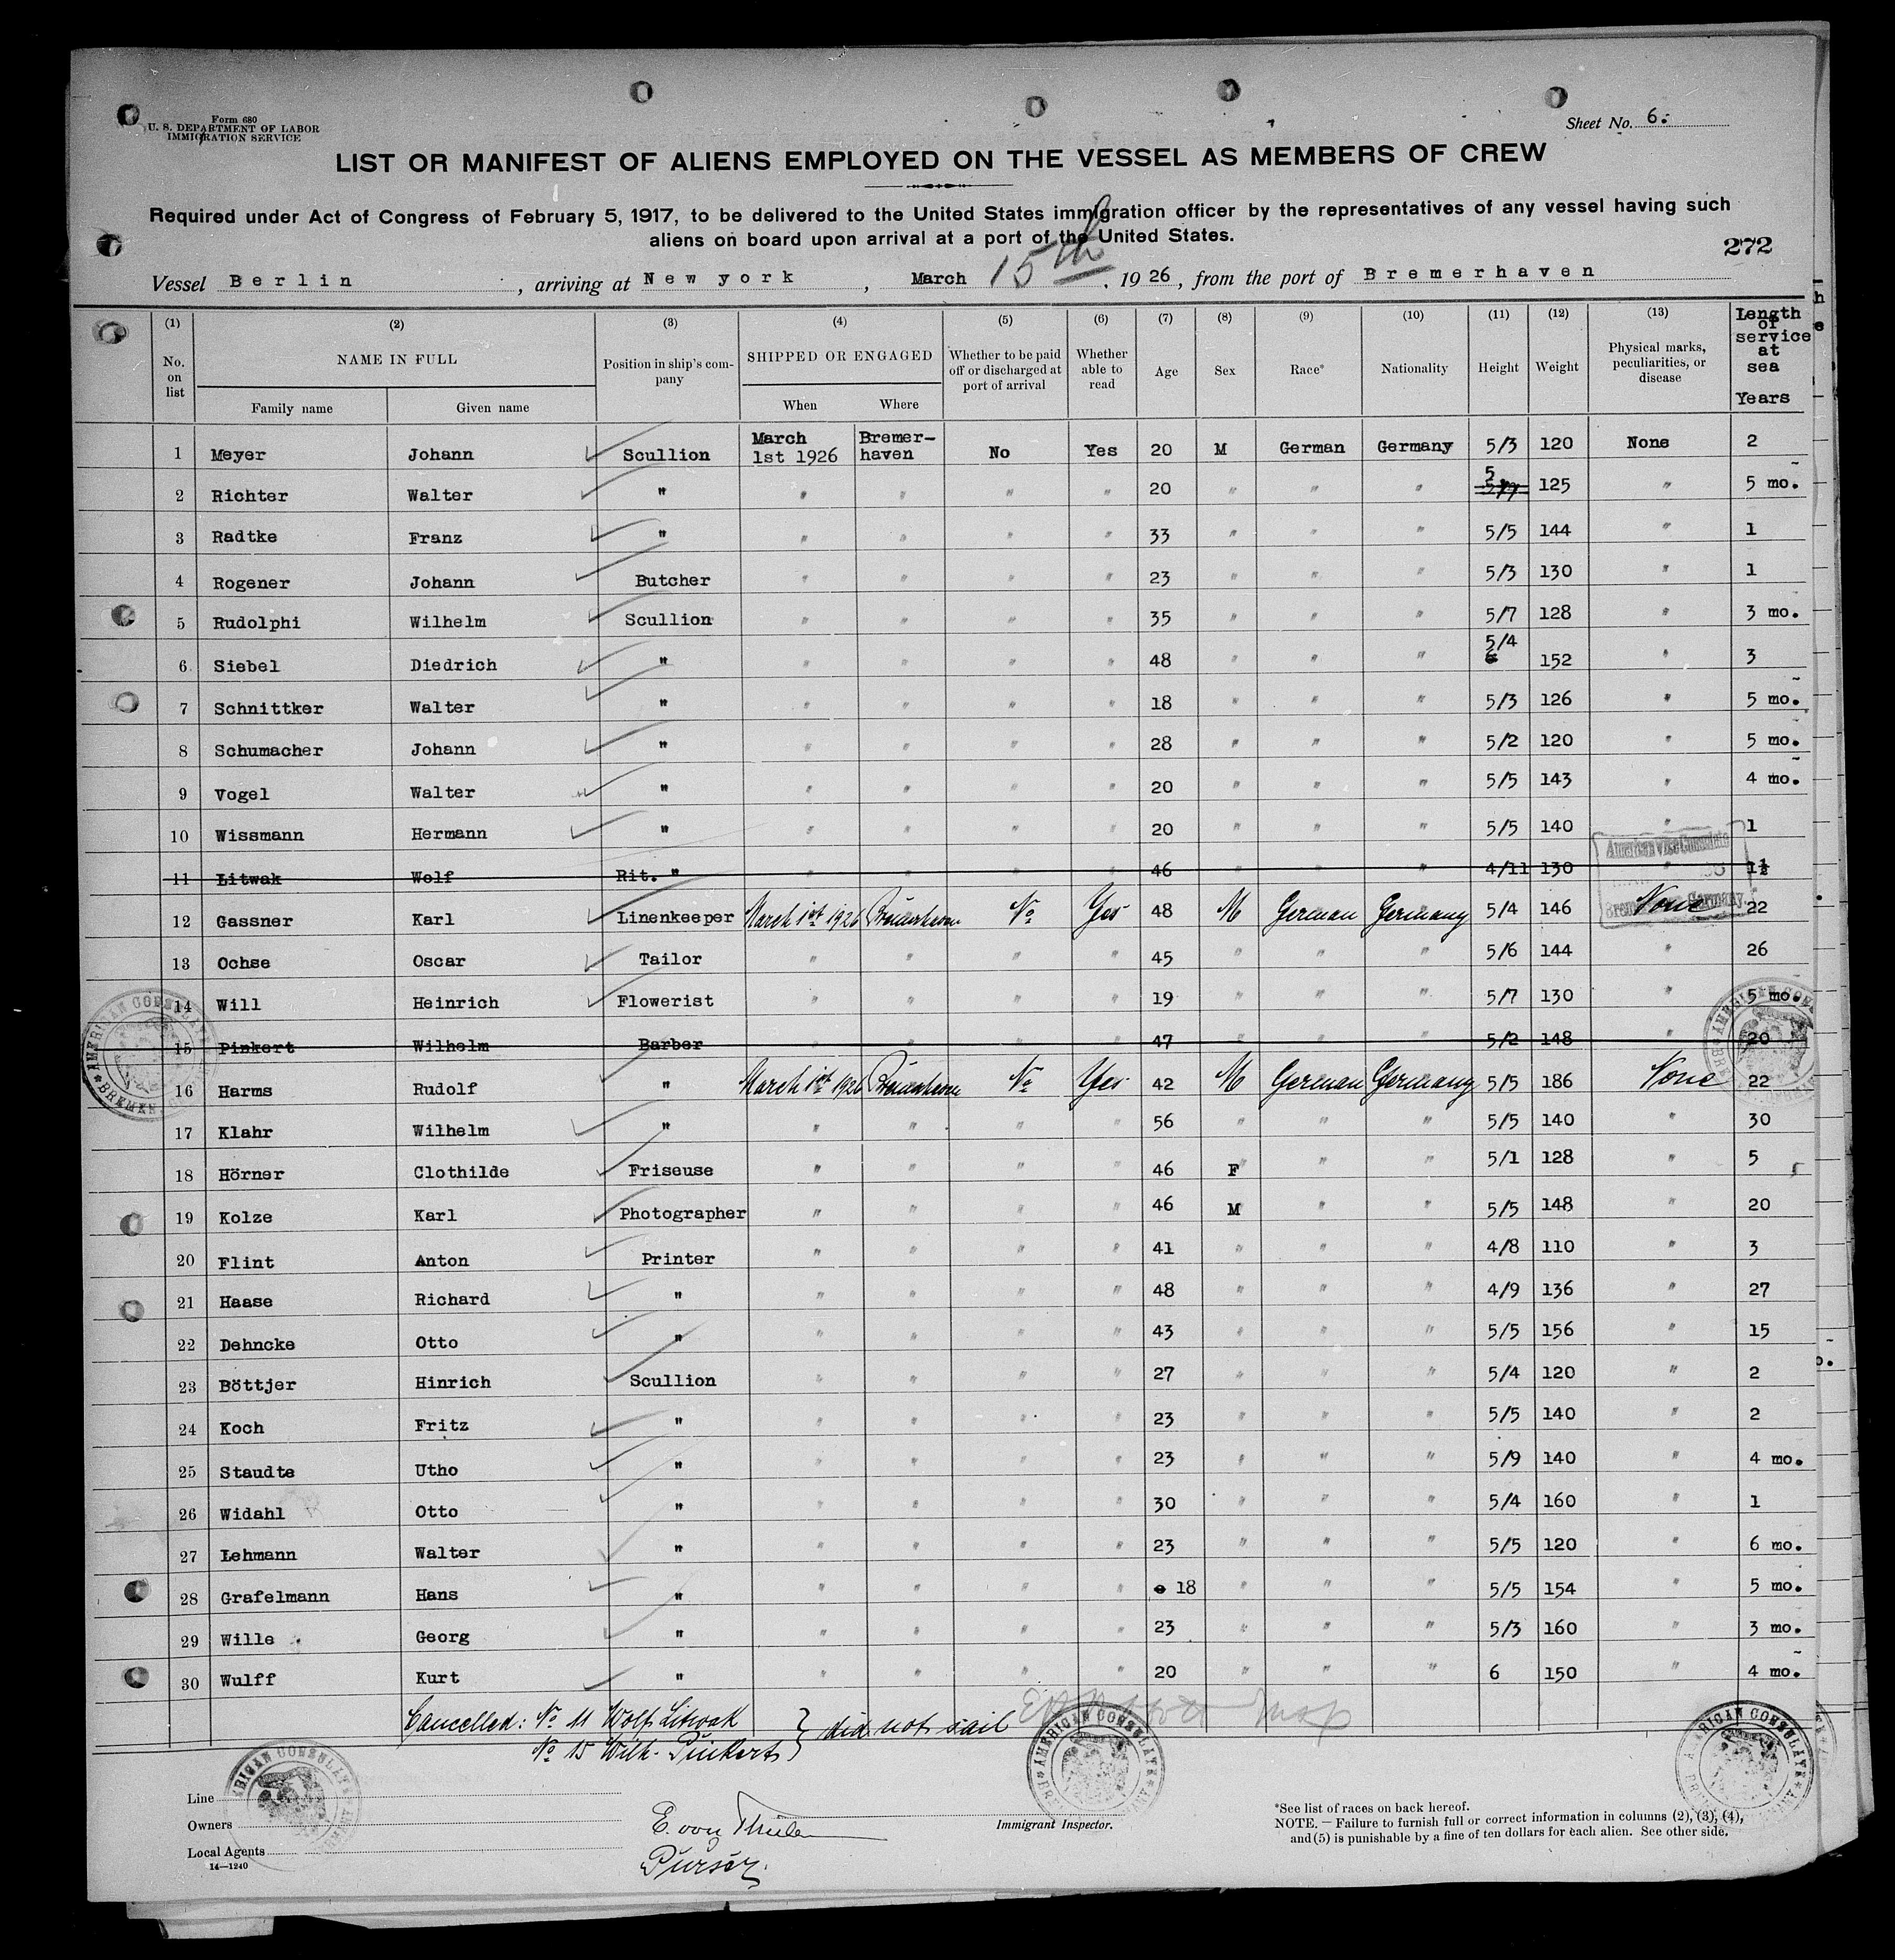 Form 680
U. S. DEPARTMENT OF LABOR
IMMIGRATION SERVICE
Sheet No. 6.
LIST OR MANIFEST OF ALIENS EMPLOYED ON THE VESSEL AS MEMBERS OF CREW
Required under Act of Congress of February 5, 1917, to be delivered to the United States immigration officer by the representatives of any vessel having such
aliens on board upon arrival at a port of the United States.
272
Vessel Berlin, arriving at New york, March 15th, 1926, from the port of Bremerhaven
(1) (2) (3) (4) (5) (6) (7) (8) (9) (10) (11) (12) (13)
No. on list NAME IN FULL Family name Given name Position in ship's company SHIPPED OR ENGAGED When Where Whether to be paid off or discharged at port of arrival Whether able to read Age Sex Race* Nationality Height Weight Physical marks, peculiarities, or disease Length of service at sea Years
1 Meyer Johann Scullion March 1st 1926 Bremer-haven No Yes 20 M German Germany 5/3 120 None 2
2 Richter Walter " " " " " 20 " " " 5 125 " 5 mo.
3 Radtke Franz " " " " " 33 " " " 5/5 144 " 1
4 Rogener Johann Butcher " " " " 23 " " " 5/3 130 " 1
5 Rudolphi Wilhelm Scullion " " " " 35 " " " 5/7 128 " 3 mo.
6 Siebel Diedrich " " " " " 48 " " " 5/4 152 " 3
7 Schnittker Walter " " " " " 18 " " " 5/3 126 " 5 mo.
8 Schumacher Johann " " " " " 28 " " " 5/2 120 " 5 mo.
9 Vogel Walter " " " " " 20 " " " 5/5 143 " 4 mo.
10 Wissmann Hermann " " " " " 20 " " " 5/5 140 " 1
11 Litwak Wolf Rit. " " " " " 46 " " " 4/11 130 " 1½
12 Gassner Karl Linenkeeper March 1st 1926 Bremerhaven No Yes 48 M German Germany 5/4 146 None 22
13 Ochse Oscar Tailor " " " " 45 " " " 5/6 144 " 26
14 Will Heinrich Flowerist " " " " 19 " " " 5/7 130 " 5 mo.
15 Pinkert Wilhelm Barber " " " " 47 " " " 5/2 148 " 20
16 Harms Rudolf " March 1st 1926 Bremerhaven No Yes 42 M German Germany 5/5 186 None 22
17 Klahr Wilhelm " " " " " 56 " " " 5/5 140 " 30
18 Hörner Clothilde Friseuse " " " " 46 F " " 5/1 128 " 5
19 Kolze Karl Photographer " " " " 46 M " " 5/5 148 " 20
20 Flint Anton Printer " " " " 41 " " " 4/8 110 " 3
21 Haase Richard " " " " " 48 " " " 4/9 136 " 27
22 Dehncke Otto " " " " " 43 " " " 5/5 156 " 15
23 Böttjer Hinrich Scullion " " " " 27 " " " 5/4 120 " 2
24 Koch Fritz " " " " " 23 " " " 5/5 140 " 2
25 Staudte Utho " " " " " 23 " " " 5/9 140 " 4 mo.
26 Widahl Otto " " " " " 30 " " " 5/4 160 " 1
27 Lehmann Walter " " " " " 23 " " " 5/5 120 " 6 mo.
28 Grafelmann Hans " " " " " 18 " " " 5/5 154 " 5 mo.
29 Wille Georg " " " " " 23 " " " 5/3 160 " 3 mo.
30 Wulff Kurt " " " " " 20 " " " 6 150 " 4 mo.
Cancelled: No 11 Wolf Litwak
No 15 Wilh. Pinkert } did not sail
Insp
AMERICAN CONSULATE
Line
Owners
Local Agents
14—1240
E. von Thülen
Purser.
Immigrant Inspector.
*See list of races on back hereof.
NOTE.—Failure to furnish full or correct information in columns (2), (3), (4),
and (5) is punishable by a fine of ten dollars for each alien. See other side.